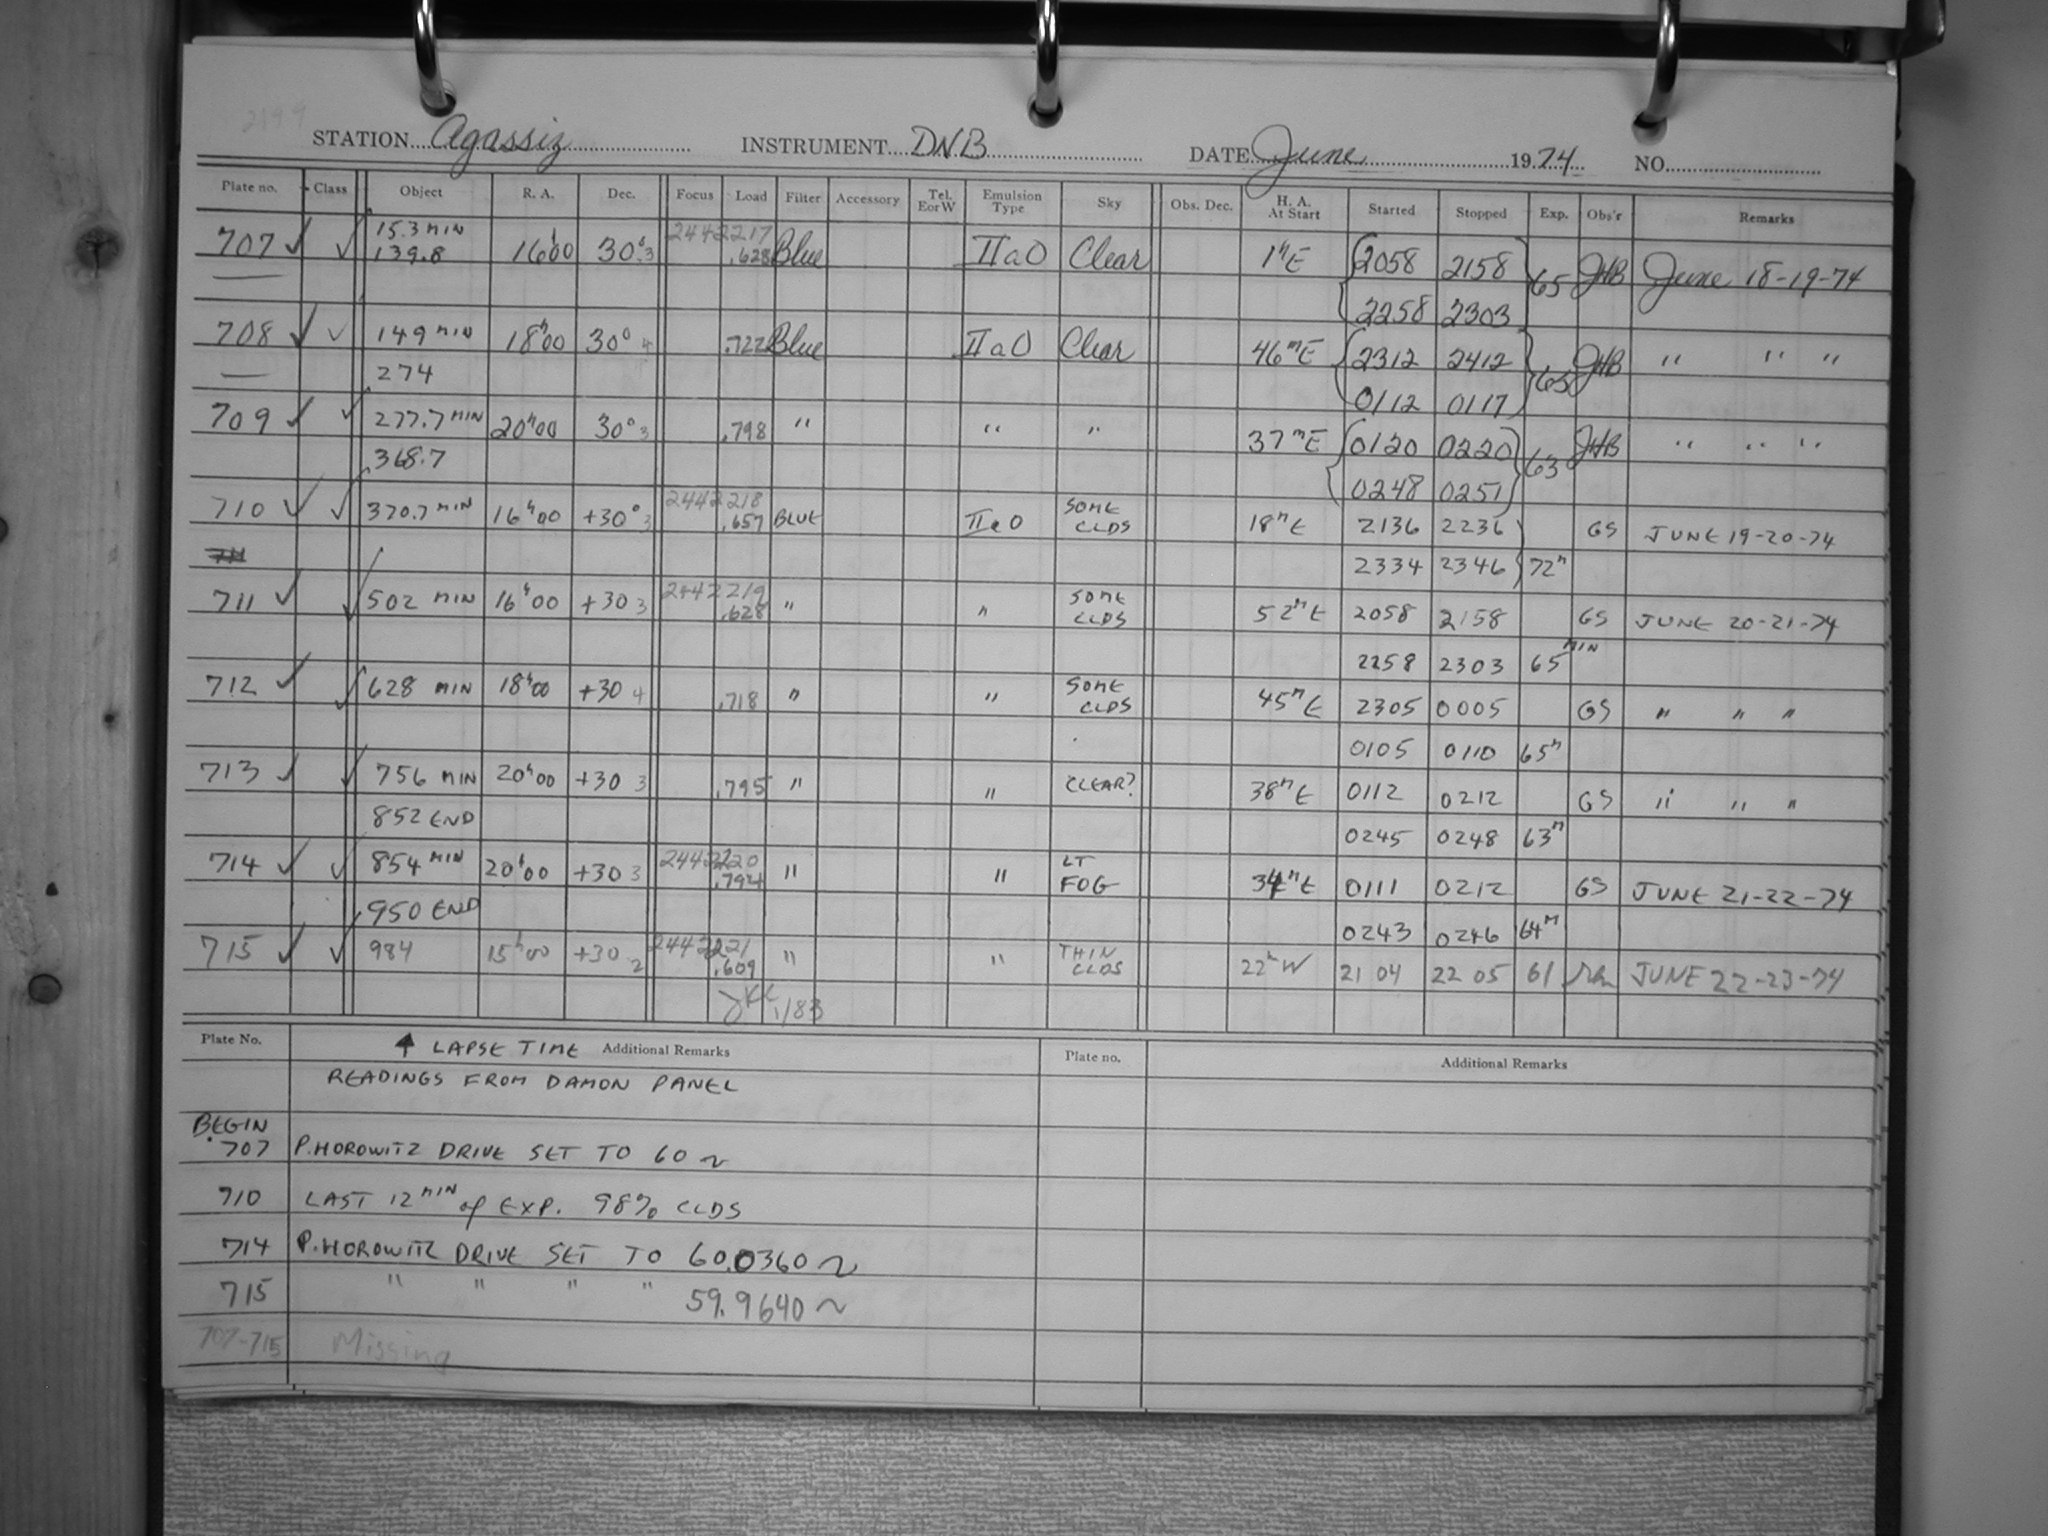 2199
STATION Agassiz INSTRUMENT DNB DATE June 1974 NO.
Plate no. Class Object R. A. Dec. Focus Load Filter Accessory Tel. E or W Emulsion Type Sky Obs. Dec. H. A. At Start Started Stopped Exp. Obs'r Remarks
707 ✓ ✓ 15.3 MIN 16h00 30° 3 2442217 .628 Blue IIaO Clear 1hE 2058 2158 65 JHB June 18-19-74
139.8 2258 2303
708 ✓ ✓ 149 MIN 18h00 30° 4 .722 Blue IIaO Clear 46mE 2312 2412 65 JHB " " "
274 0112 0117
709 ✓ ✓ 277.7 MIN 20h00 30° 3 .798 " " " 37mE 0120 0220 63 JHB " " "
368.7 0248 0251
710 ✓ ✓ 370.7 MIN 16h00 +30° 3 2442218 .657 BLUE IIaO SOME CLDS 18mE 2136 2236 GS JUNE 19-20-74
711 2334 2346 72m
711 ✓ ✓ 502 MIN 16h00 +30 3 2442219 .628 " " SOME CLDS 52mE 2058 2158 GS JUNE 20-21-74
2258 2303 65 MIN
712 ✓ ✓ 628 MIN 18h00 +30 4 .718 " " SOME CLDS 45mE 2305 0005 GS " " "
0105 0110 65m
713 ✓ ✓ 756 MIN 20h00 +30 3 .795 " " CLEAR? 38mE 0112 0212 GS " " "
852 END 0245 0248 63m
714 ✓ ✓ 854 MIN 20h00 +30 3 2442220 .794 " " LT FOG 34mE 0111 0212 GS JUNE 21-22-74
950 END 0243 0246 64M
715 ✓ ✓ 984 15h00 +30 2 2442221 .609 " " THIN CLDS 22mW 21 04 22 05 61 JUNE 22-23-74
1/83
Plate No. ↑ LAPSE TIME Additional Remarks Plate no. Additional Remarks
READINGS FROM DAMON PANEL
BEGIN
707 P. HOROWITZ DRIVE SET TO 60 ~
710 LAST 12 MIN of EXP. 98% CLDS
714 P. HOROWITZ DRIVE SET TO 60.0360 ~
715 " " " " 59.9640 ~
707-715 Missing